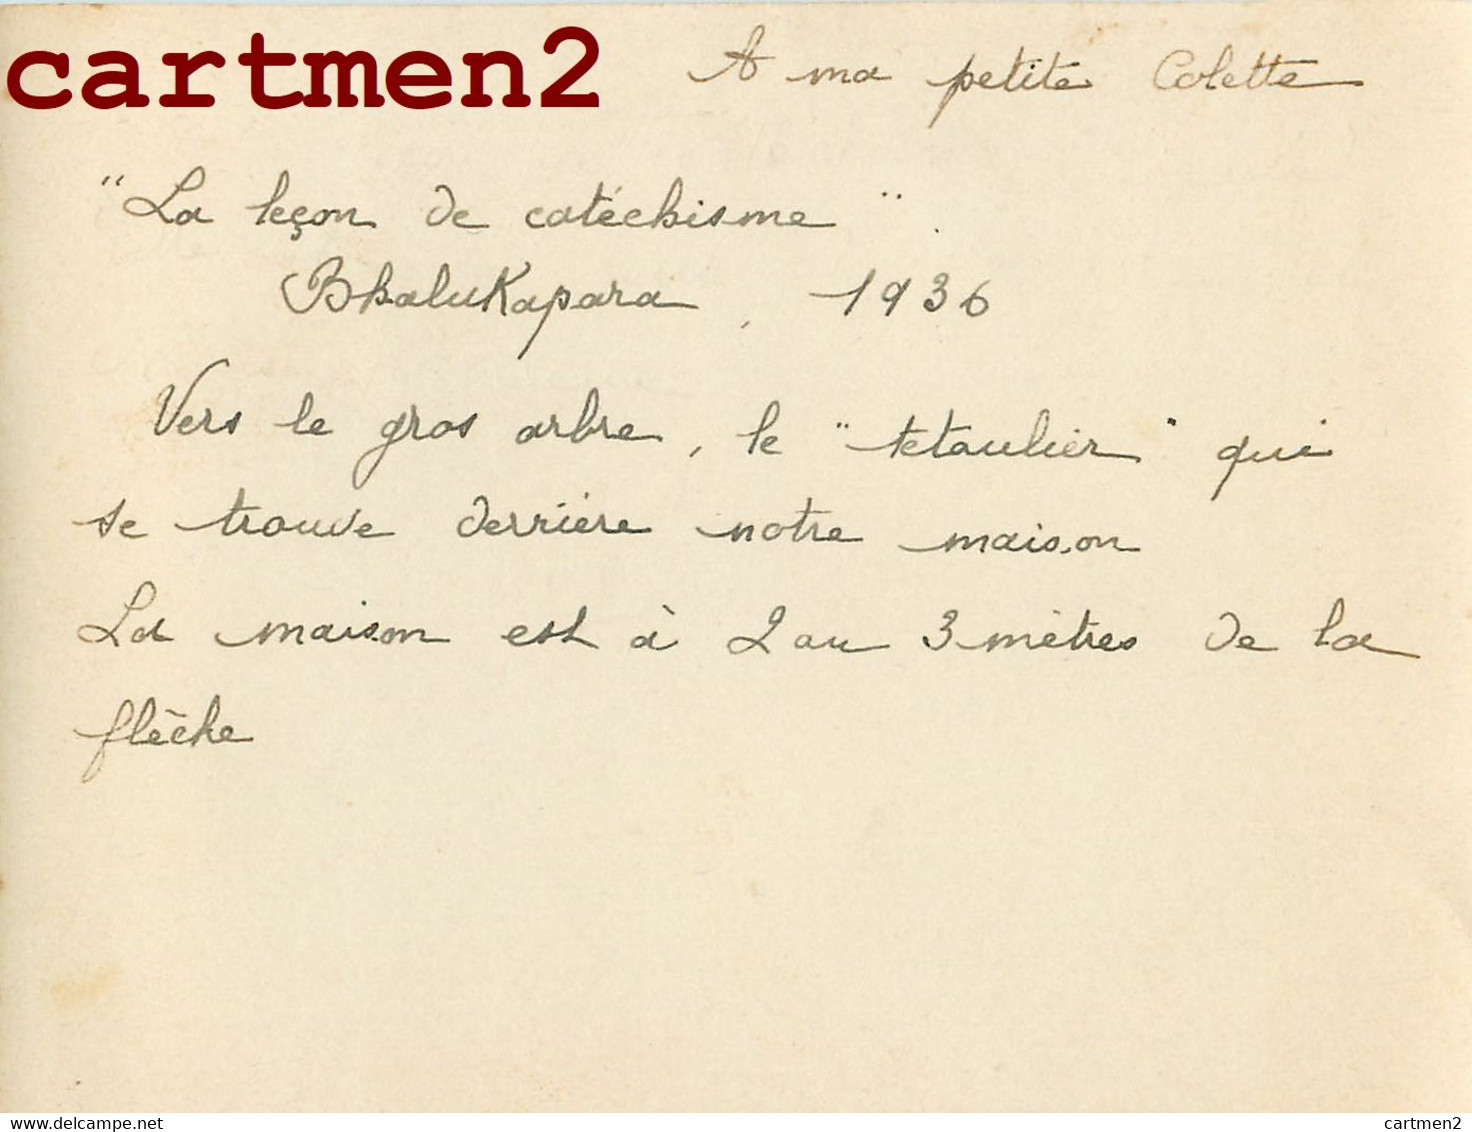 cartmen2
A ma petite Colette
"La leçon de catéchisme".
Bhalukapara, 1936
Vers le gros arbre, le "tetaulier" qui
se trouve derrière notre maison
La maison est à 2 au 3 mètres de la
flèche
delcampe.net
cartmen2